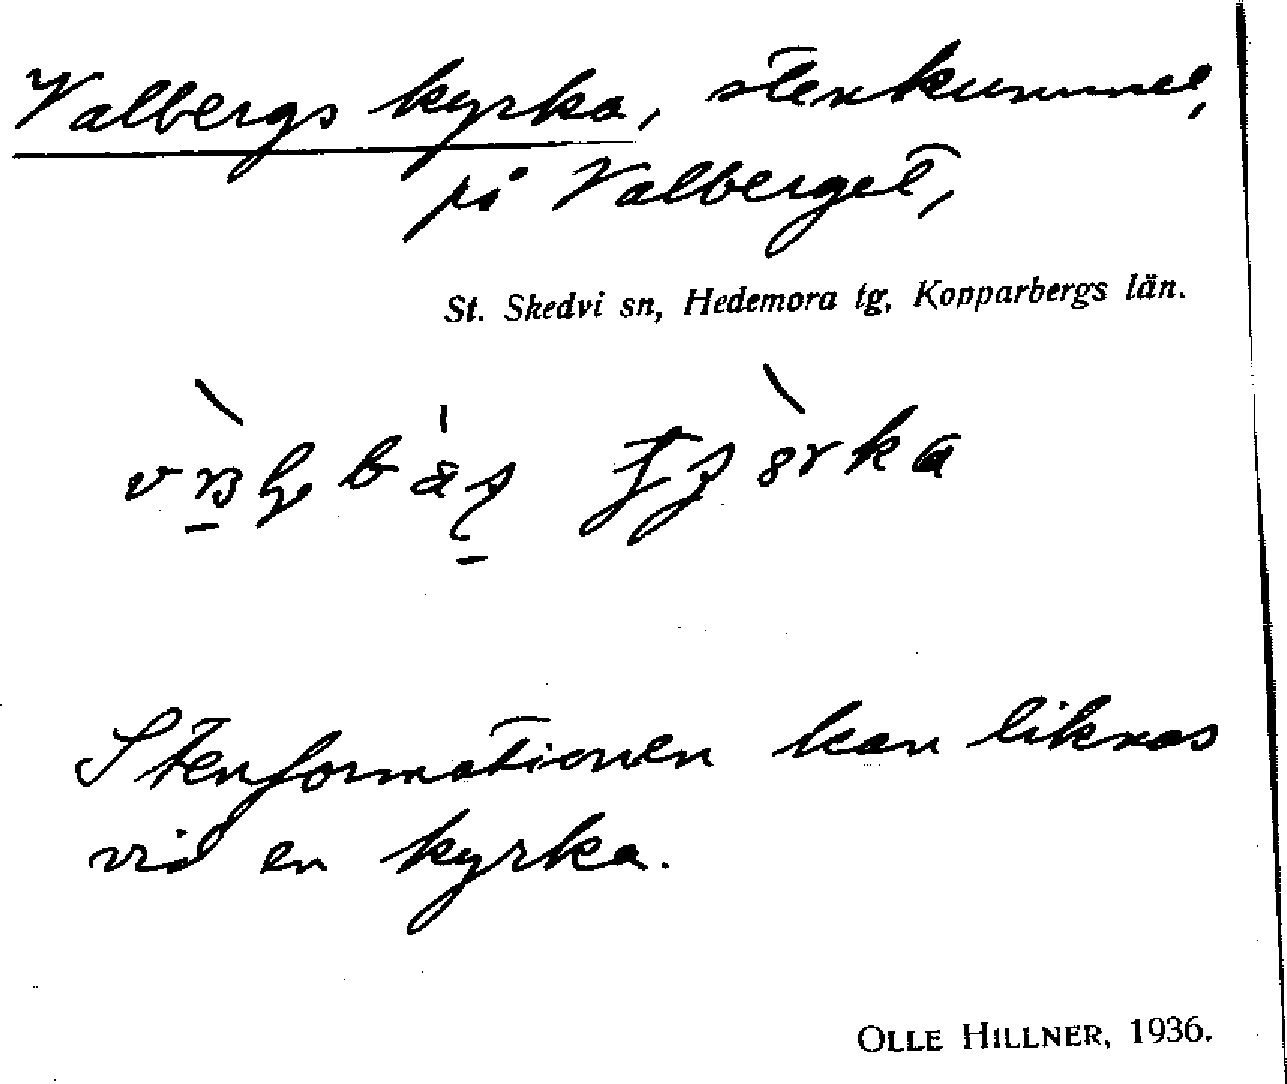 Valbergs kyrka, stenkummel,
på Valberget,
St. Skedvi sn, Hedemora tg, Kopparbergs län.
Stenformationen kan liknas
vid en kyrka.
OLLE HILLNER, 1936.